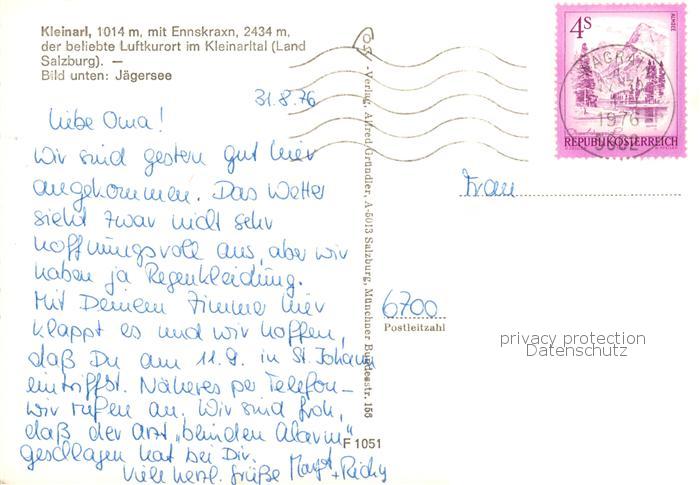 Kleinarl, 1014 m, mit Ennskraxn, 2434 m,
der beliebte Luftkurort im Kleinarltal (Land
Salzburg). —
Bild unten: Jägersee
31.8.76
Liebe Oma!
Wir sind gestern gut hier
angekommen. Das Wetter
sieht zwar nicht sehr
hoffnungsvoll aus, aber wir
haben ja Regenkleidung.
Mit Deinem Zimmer hier
klappt es und wir hoffen,
daß Du am 11.9. in St. Johann
eintriffst. Näheres per Telefon –
wir rufen an. Wir sind froh,
daß der Arzt „blinden Alarm“
geschlagen hat bei Dir.
Viele herzl. Grüße Margot + Richy
Verlag: Alfred Gründler, A-5013 Salzburg, Münchner Bundesstr. 156
F 1051
4 S
ALMSEE
REPUBLIK ÖSTERREICH
WAGRAIN
1976
5602
Frau
6700
Postleitzahl
privacy protection
Datenschutz